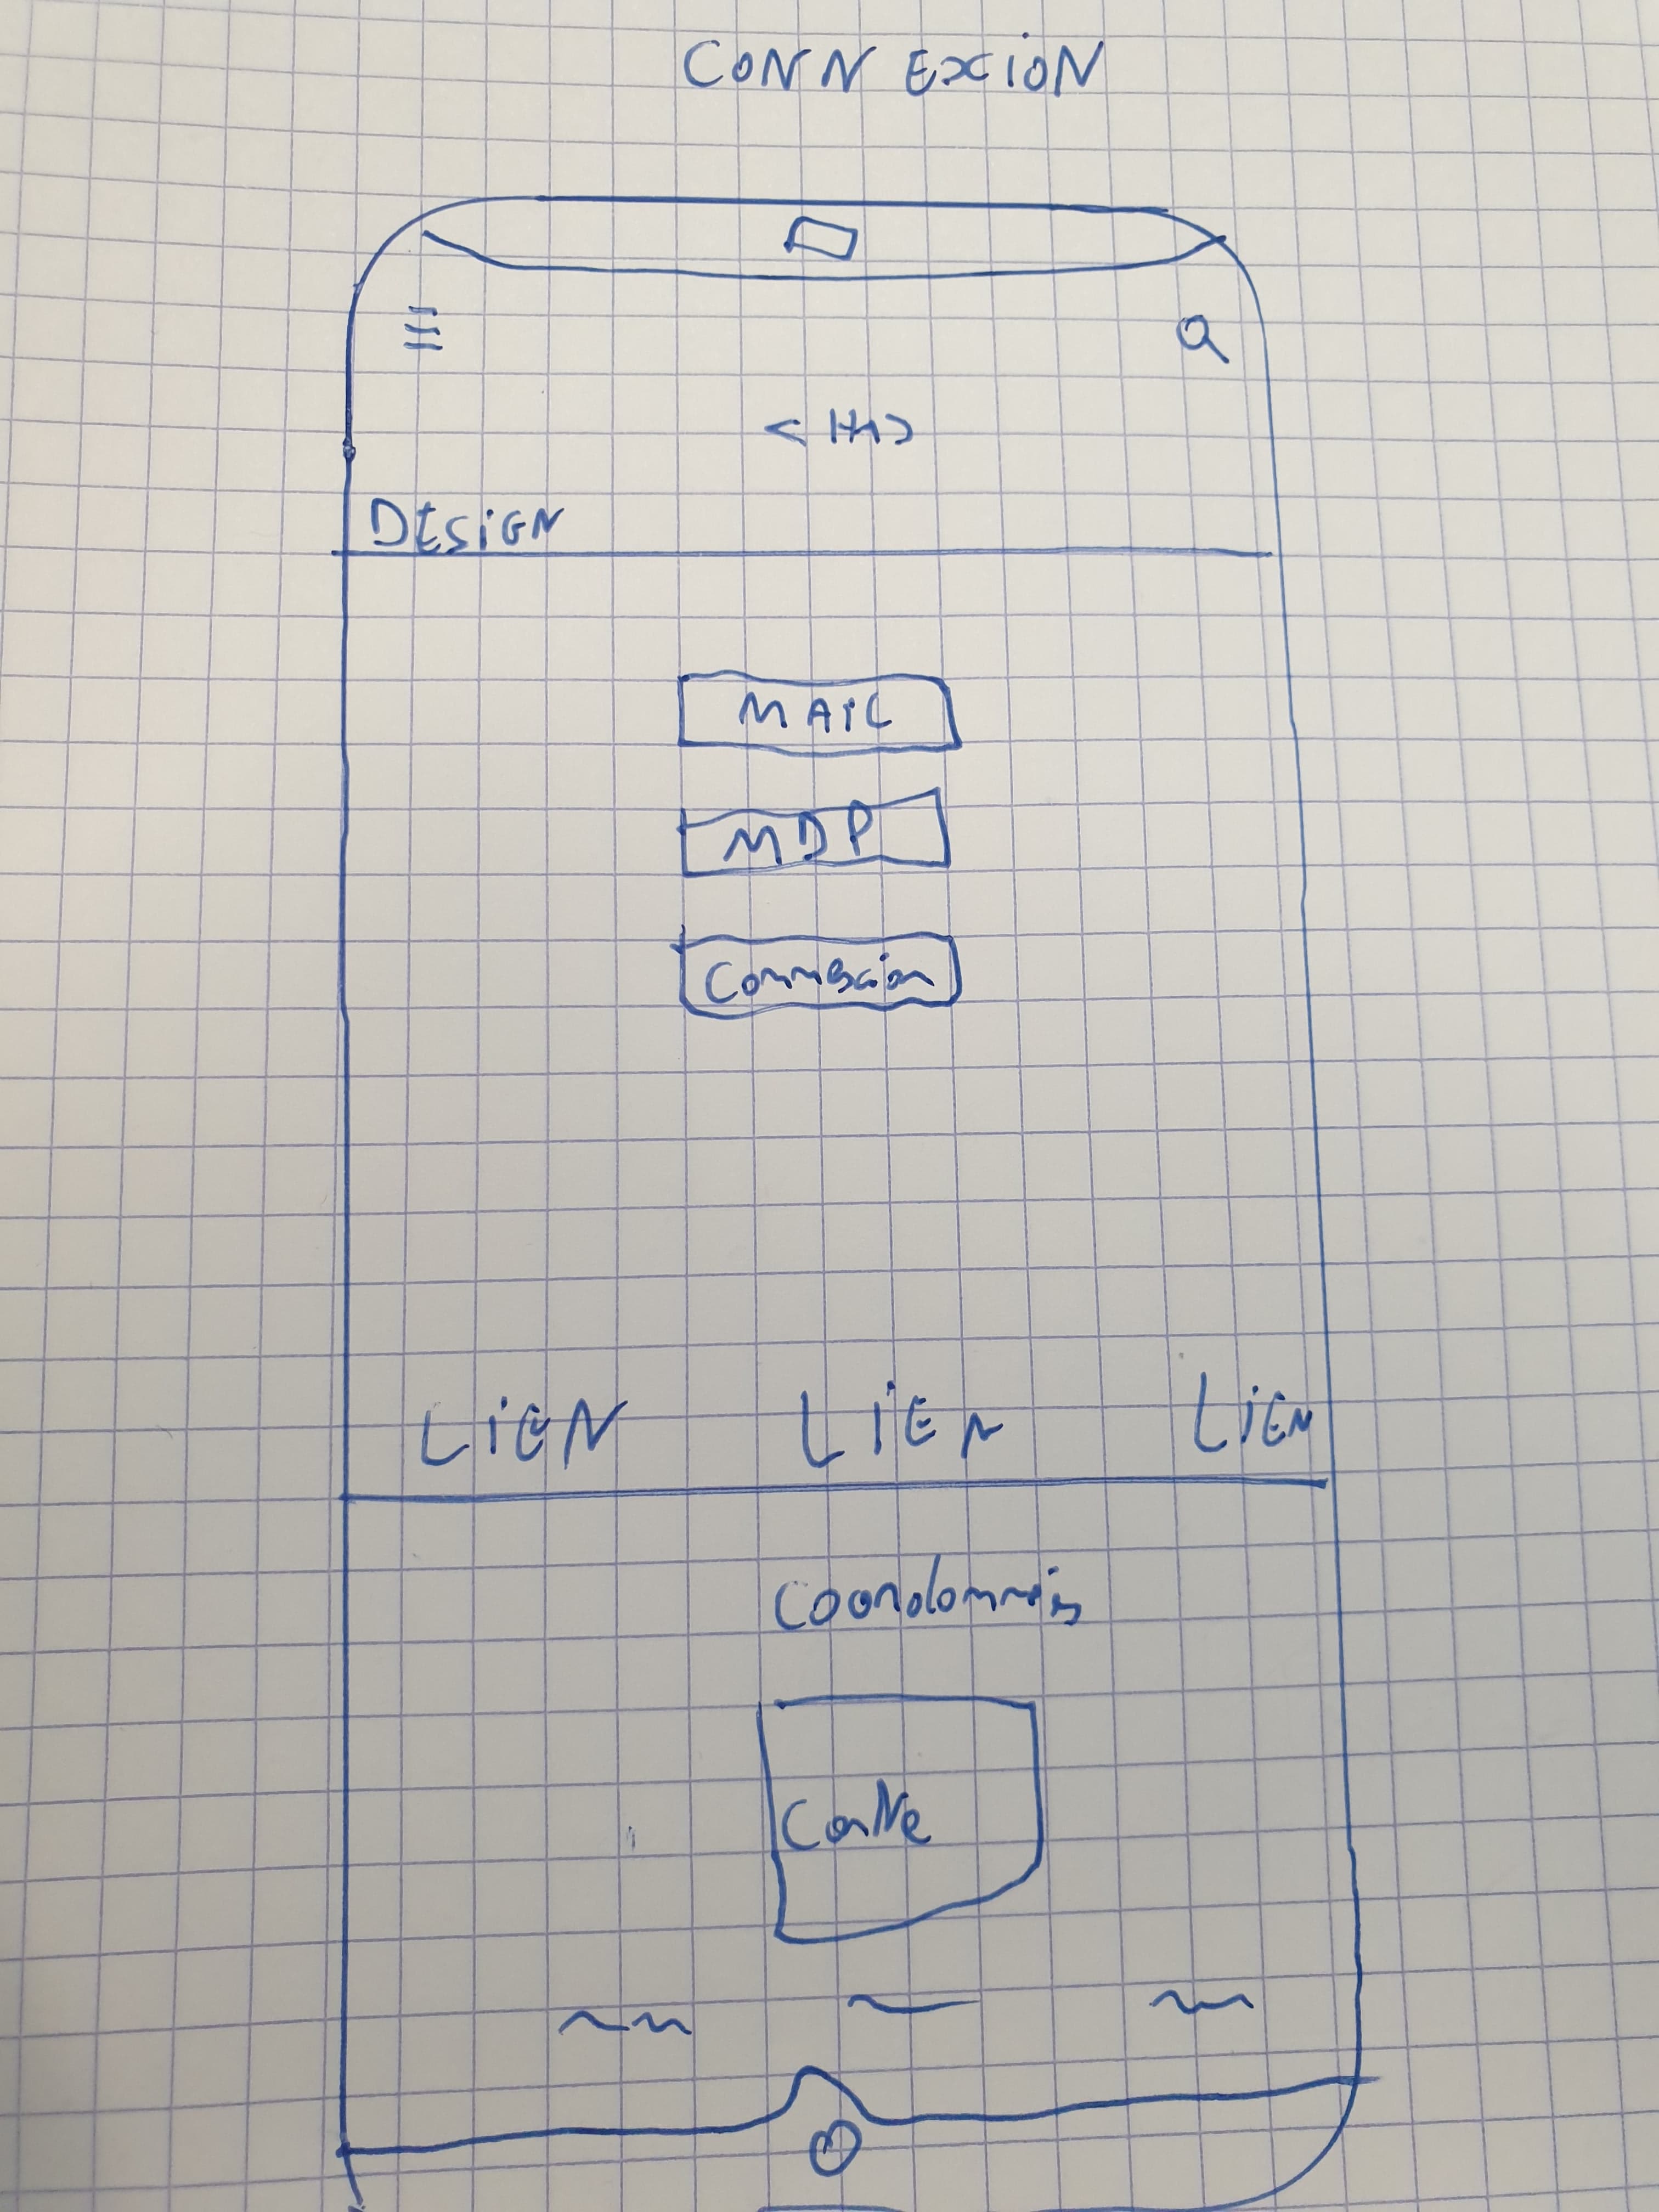 CONNEXION
< H1>
DESIGN
MAIL
MDP
Connexion
LIEN LIEN LIEN
Coordonnées
Carte